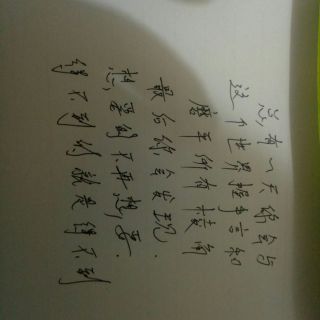 总有一天你会与
这个世界握手言和
磨平所有棱角
最后你会发现.
想要的不再想要.
得不到的就是得不到